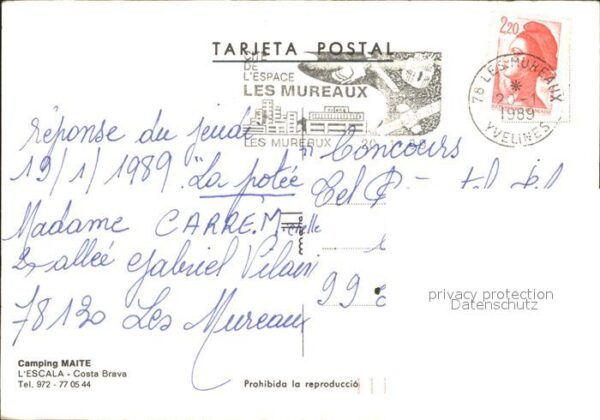 TARJETA POSTAL
2,20
CITÉ
DE
L'ESPACE
LES MUREAUX
LES MUREAUX
78 LES MUREAUX
1989
YVELINES
réponse du jeudi
19/1/1989 "La potée
Concours
Madame CARRE.Michelle
2, allée Gabriel Vilain
78130 Les Mureaux
99
privacy protection
Datenschutz
Camping MAITE
L'ESCALA - Costa Brava
Tel. 972 - 77 05 44
Prohibida la reproducció